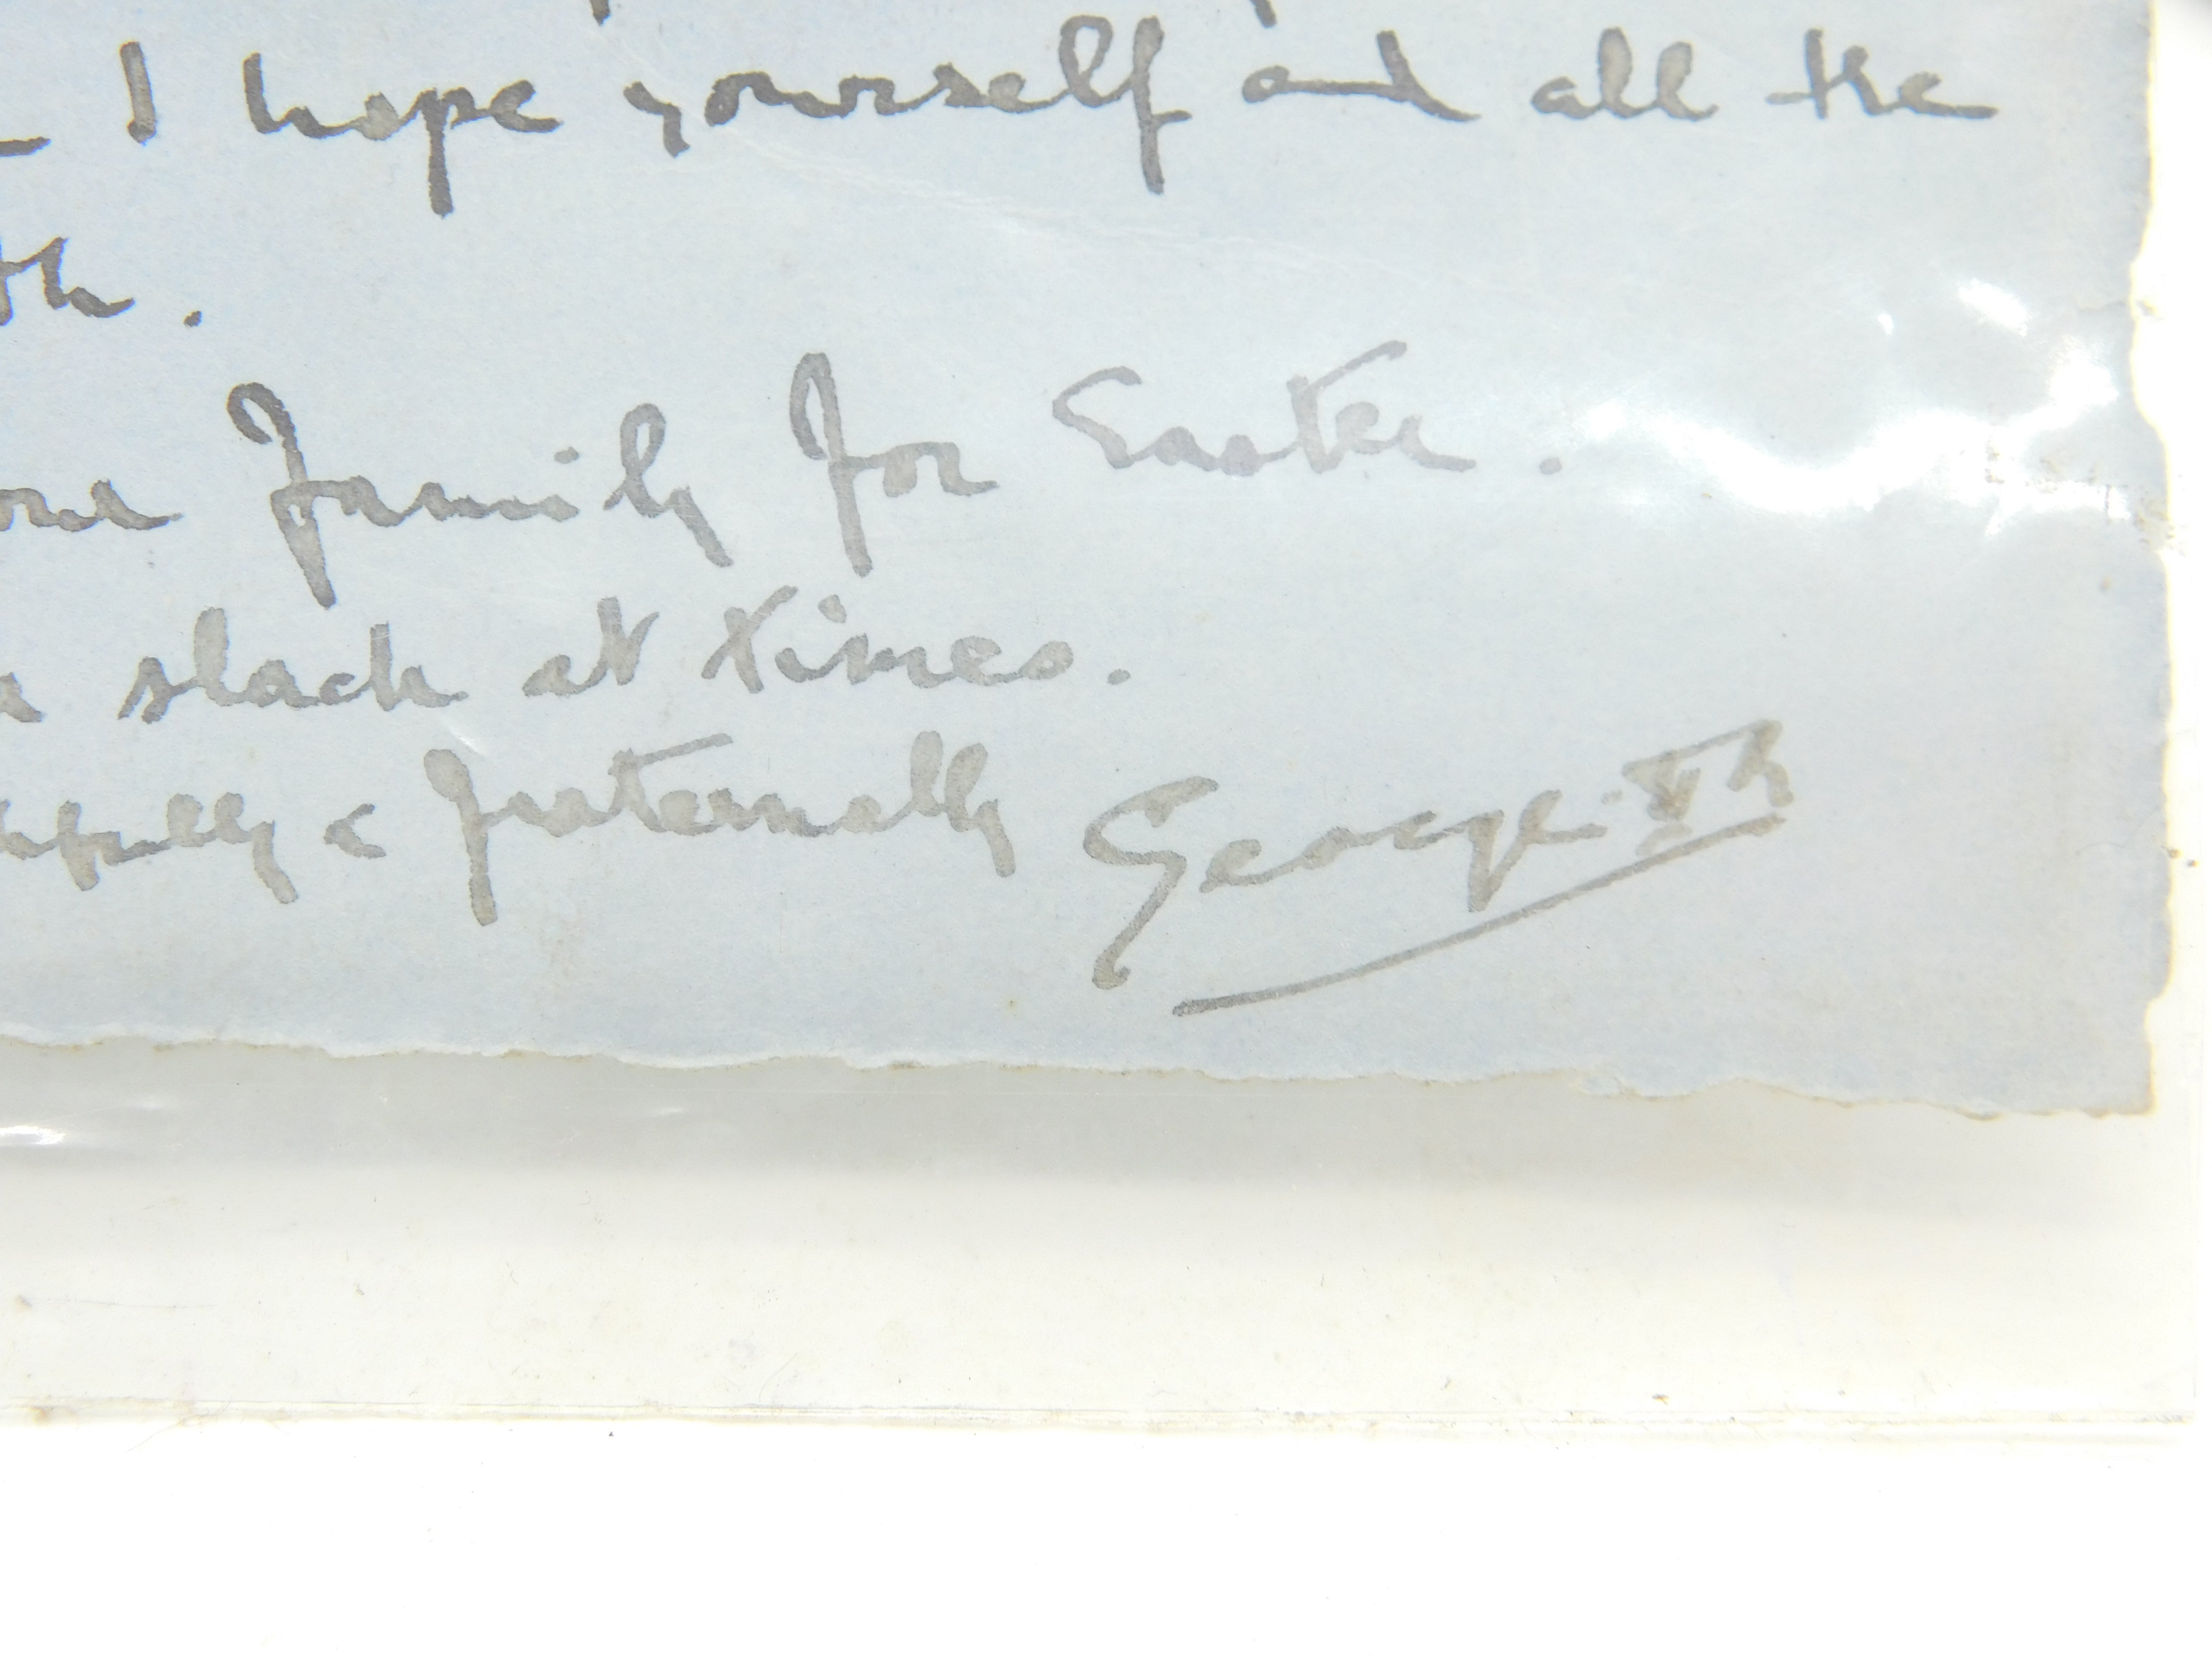 I hope yourself and all the
family for Easter.
slack at times.
& fraternally George Vth